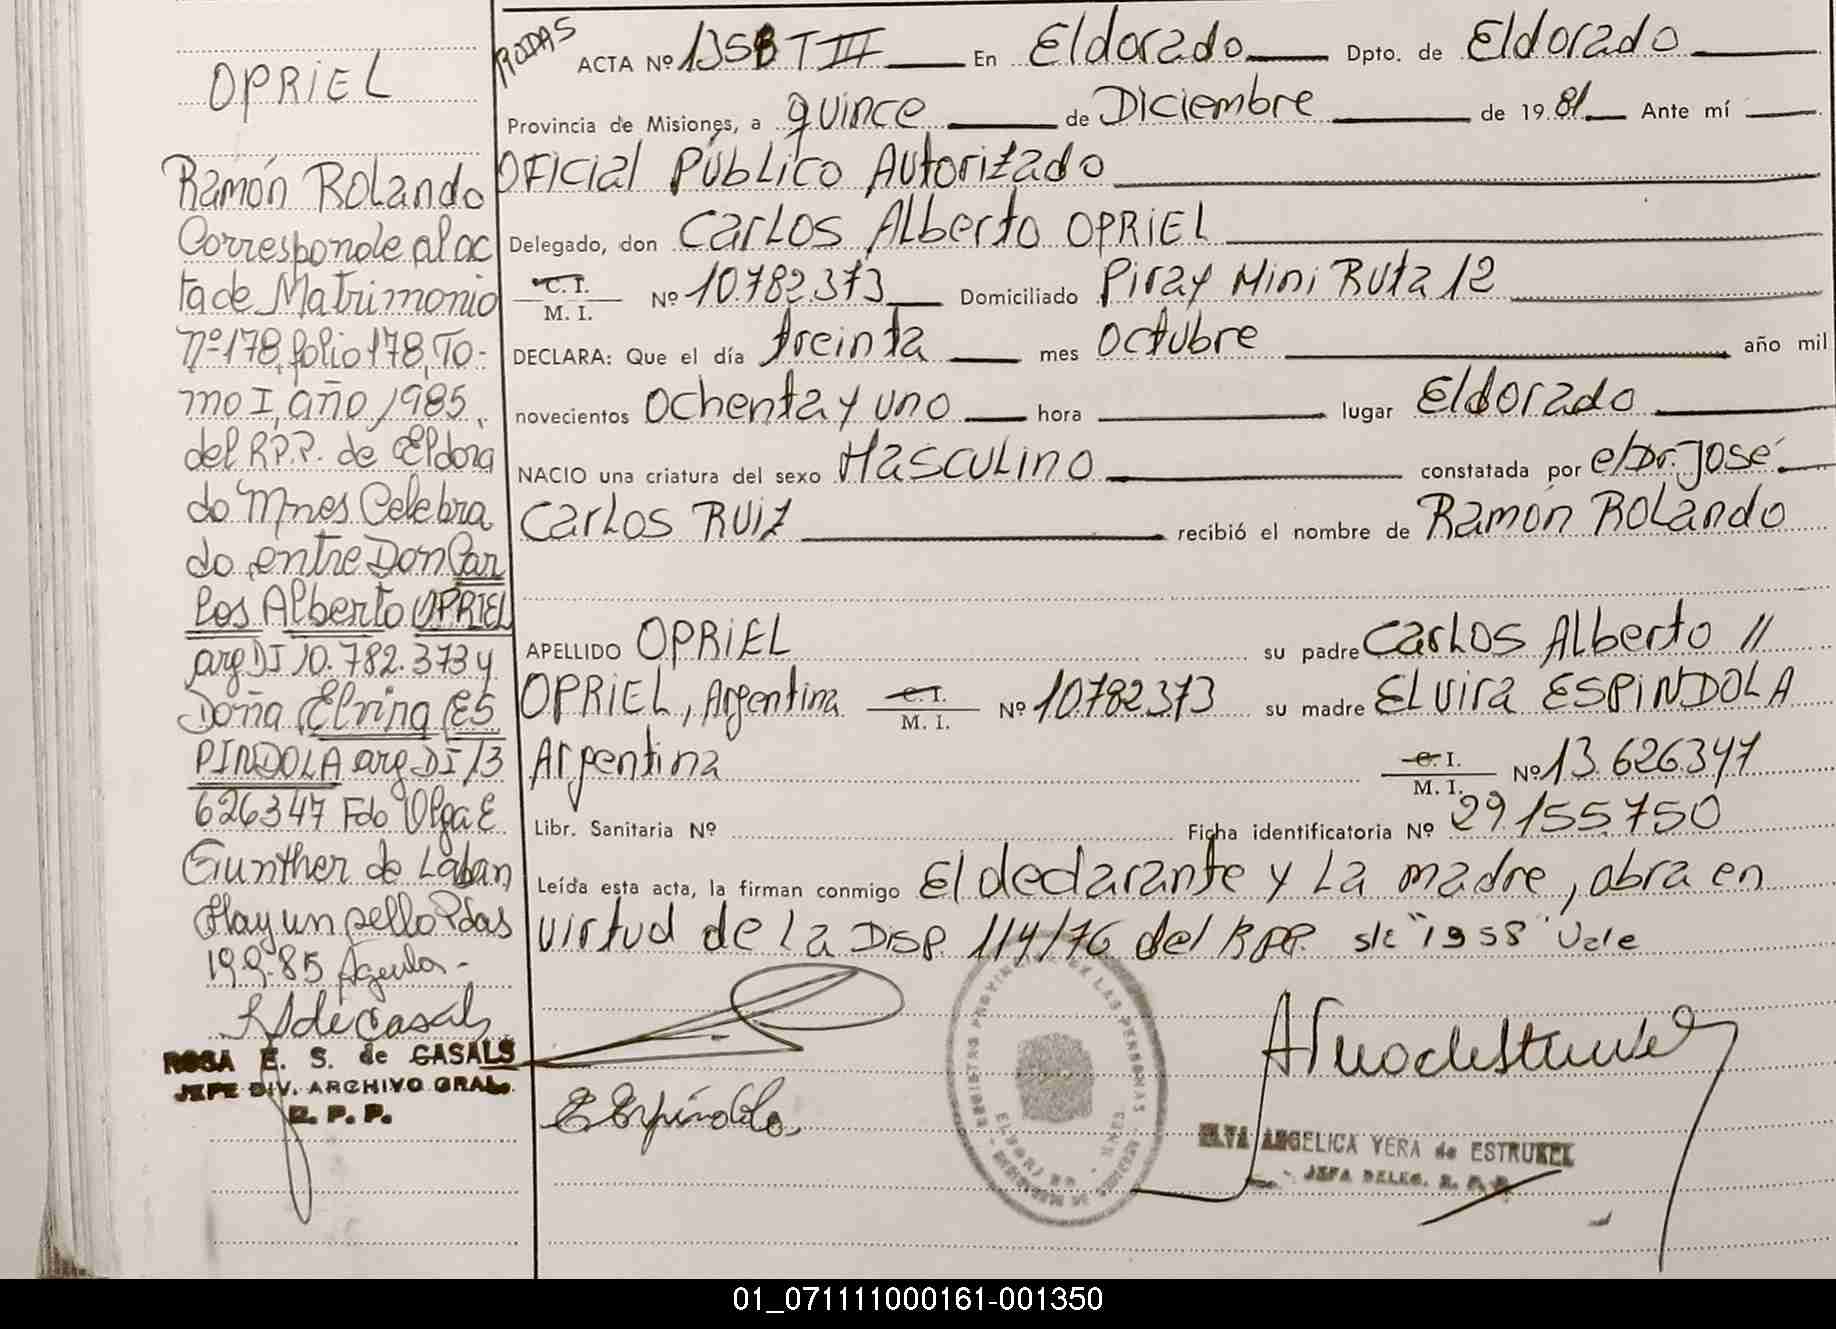 OPRIEL
Ramón Rolando
Corresponde al ac
ta de Matrimonio
Nº 178, folio 178, To-
mo I, año 1985,
del R.P.P. de Eldora
do Mnes Celebra
do entre Don Car
los Alberto OPRIEL
arg DI 10.782.373 y
Doña Elvira ES
PINDOLA arg DI 13
626347 Fdo Olga E
Gunther de Laban
Hay un sello Pdas
19.9.85
ROSA E. S. de CASALS
JEFE DIV. ARCHIVO GRAL.
R. P. P.
RODAS
ACTA Nº 1358 T III En Eldorado Dpto. de Eldorado
Provincia de Misiones, a quince de Diciembre de 1981 Ante mí
Oficial Público Autorizado
Delegado, don Carlos Alberto OPRIEL
C. I. / M. I. Nº 10.782.373 Domiciliado Piray Mini Ruta 12
DECLARA: Que el día treinta mes Octubre año mil
novecientos Ochenta y uno hora lugar Eldorado
NACIO una criatura del sexo Masculino constatada por e/Dr. José
Carlos Ruiz recibió el nombre de Ramón Rolando
APELLIDO OPRIEL su padre Carlos Alberto //
OPRIEL, Argentina C. I. / M. I. Nº 10.782.373 su madre ELVIRA ESPINDOLA
Argentina C. I. / M. I. Nº 13.626.347
Libr. Sanitaria Nº Ficha identificatoria Nº 29.155.750
Leída esta acta, la firman conmigo El declarante y La madre, obra en
virtud de La Disp. 114/76 del R.P.P. s/r "1958" Vale
E Espíndola
REGISTRO PROVINCIAL DE LAS PERSONAS
ELDORADO - MNES
ELVA ANGELICA VERA de ESTRUKEL
JEFA DELEG. R. P. P.
01_071111000161-001350